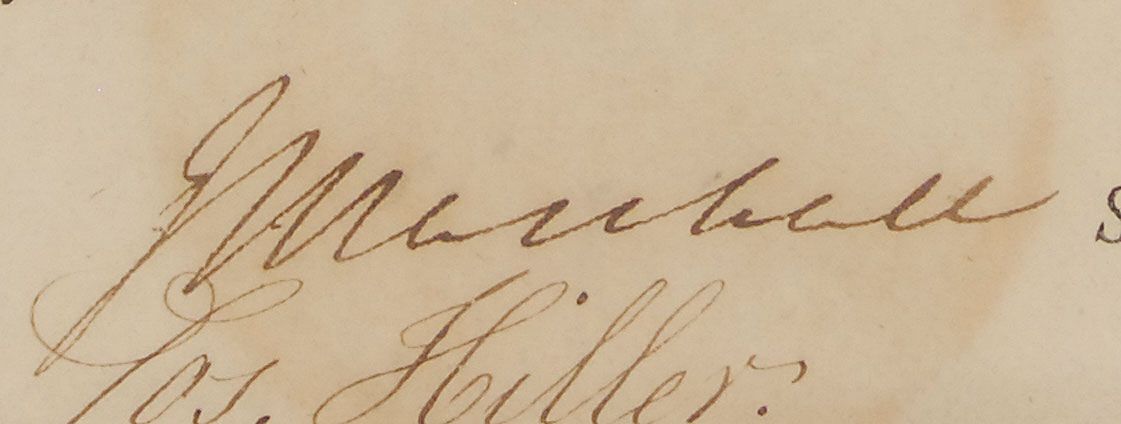 J Marshall S
Jos. Hiller.